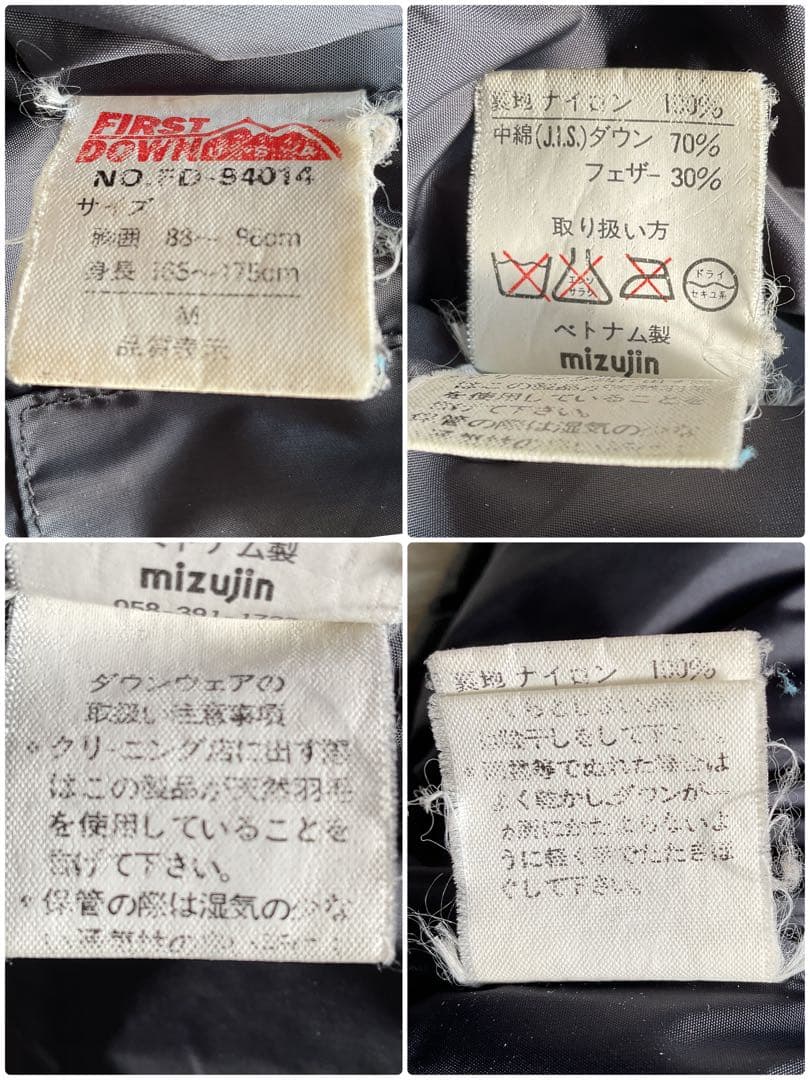 FIRST
DOWN
NO.FD-94014
サイズ
胸囲 88～96cm
身長 165～175cm
M
品質表示
裏地 ナイロン 100%
中綿(J.I.S.)ダウン 70%
フェザー 30%
取り扱い方
エンソ
サラシ
ドライ
セキユ系
ベトナム製
mizujin
はこの製品が天然羽毛
を使用していることを
告げて下さい。
保管の際は湿気の少な
い通気性の
ベトナム製
mizujin
058-391-
ダウンウェアの
取扱い注意事項
* クリーニング店に出す際
はこの製品が天然羽毛
を使用していることを
告げて下さい。
* 保管の際は湿気の少な
い通気性の
裏地 ナイロン 100%
陰干しをして下さい。
* 雨等でぬれた場合は
よく乾かし、ダウンが一
か所にかたまらないよ
うに軽く手でたたきほ
ぐして下さい。